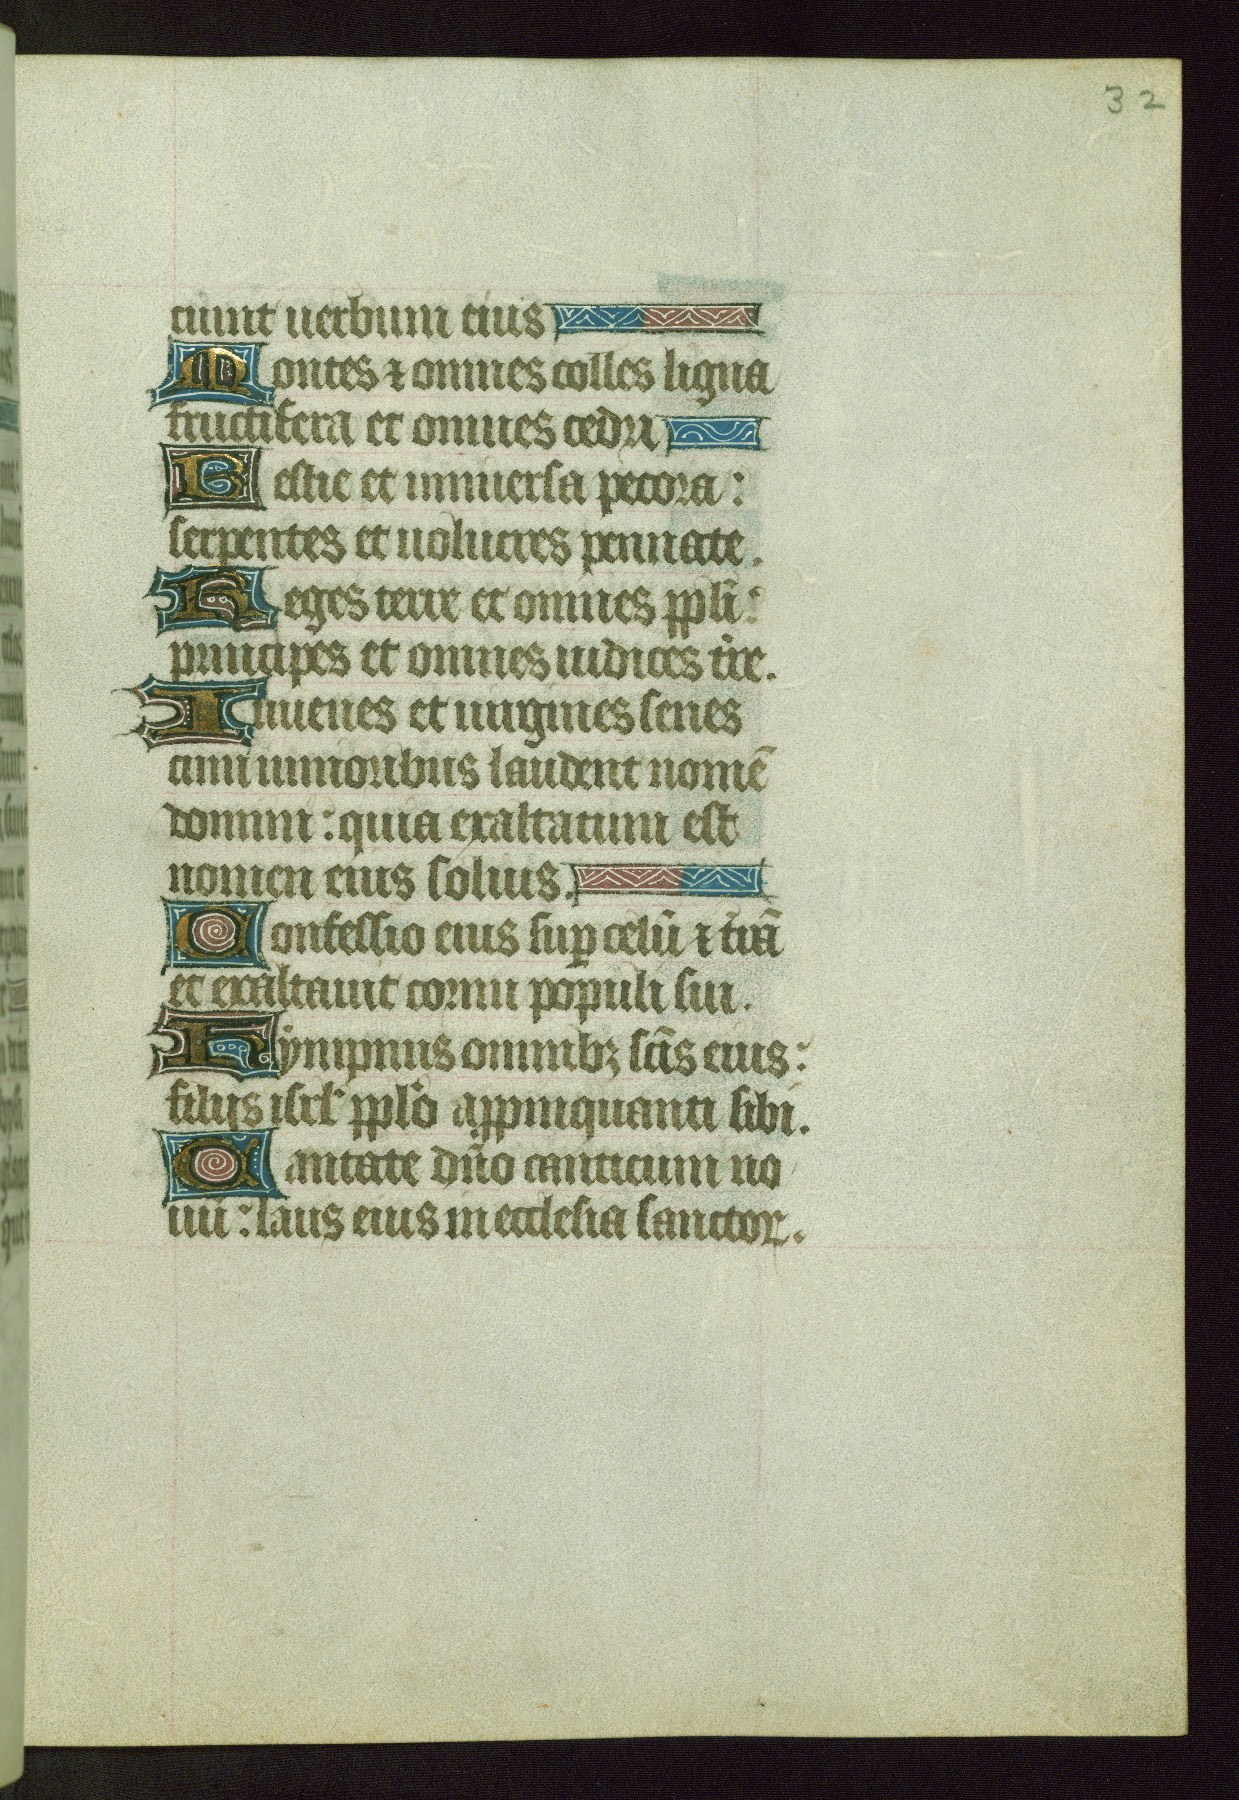 32
ciunt uerbum eius
Montes ⁊ omnes colles ligna
fructifera et omnes cedri
Bestie et uniuersa pecora:
serpentes et uolucres pennate.
Reges terre et omnes ppl̄i:
principes et omnes iudices t̄re.
Iuuenes et uirgines senes
cum iunioribus laudent nomē
domini: quia exaltatum est
nomen eius solius.
Confessio eius suꝑ celū ⁊ t̄rā
et exaltauit cornu populi sui.
Hympnus omnibꝫ sc̄is eius:
filijs isrl̄ ppl̄o appinquanti sibi.
Cantate dn̄o canticum no
uū: laus eius in ecclesia sanctoꝝ.